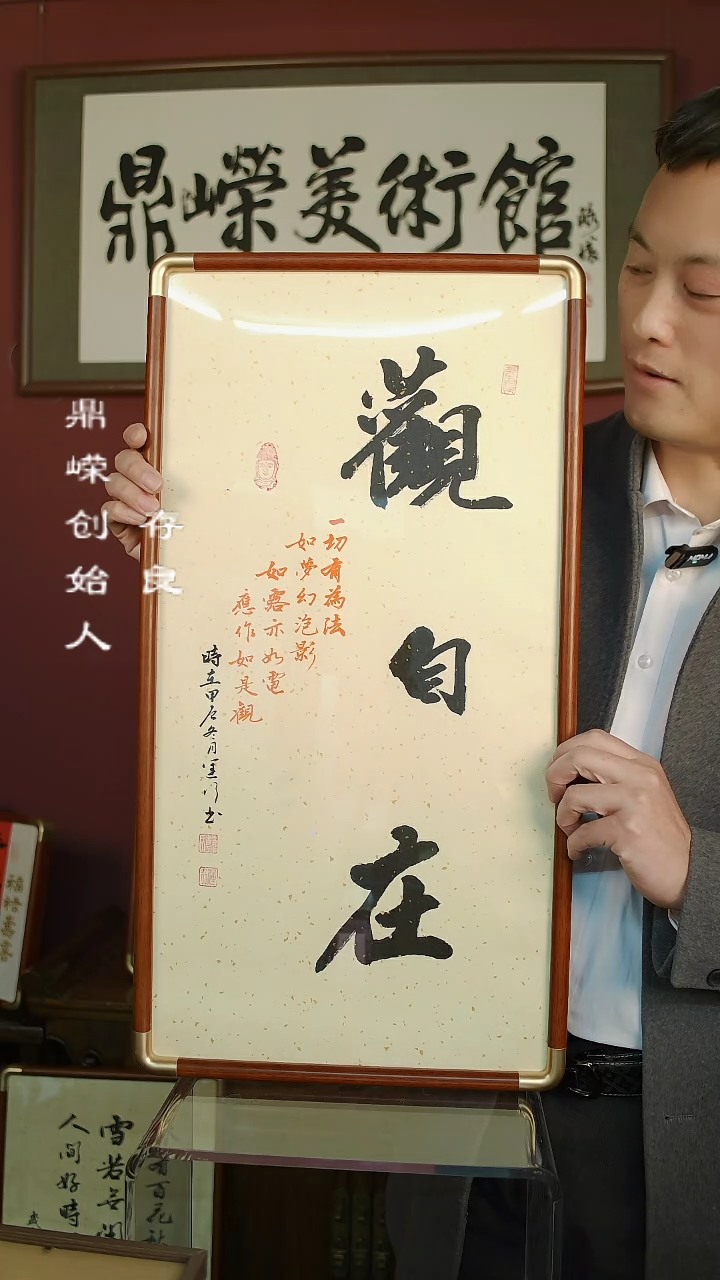 鼎嶸美術館
觀自在
一切有為法
如夢幻泡影
如露亦如電
應作如是觀
時在甲辰冬月
书
鼎嵘创始人
存良
雪若无闲
人间好時
有百花秋